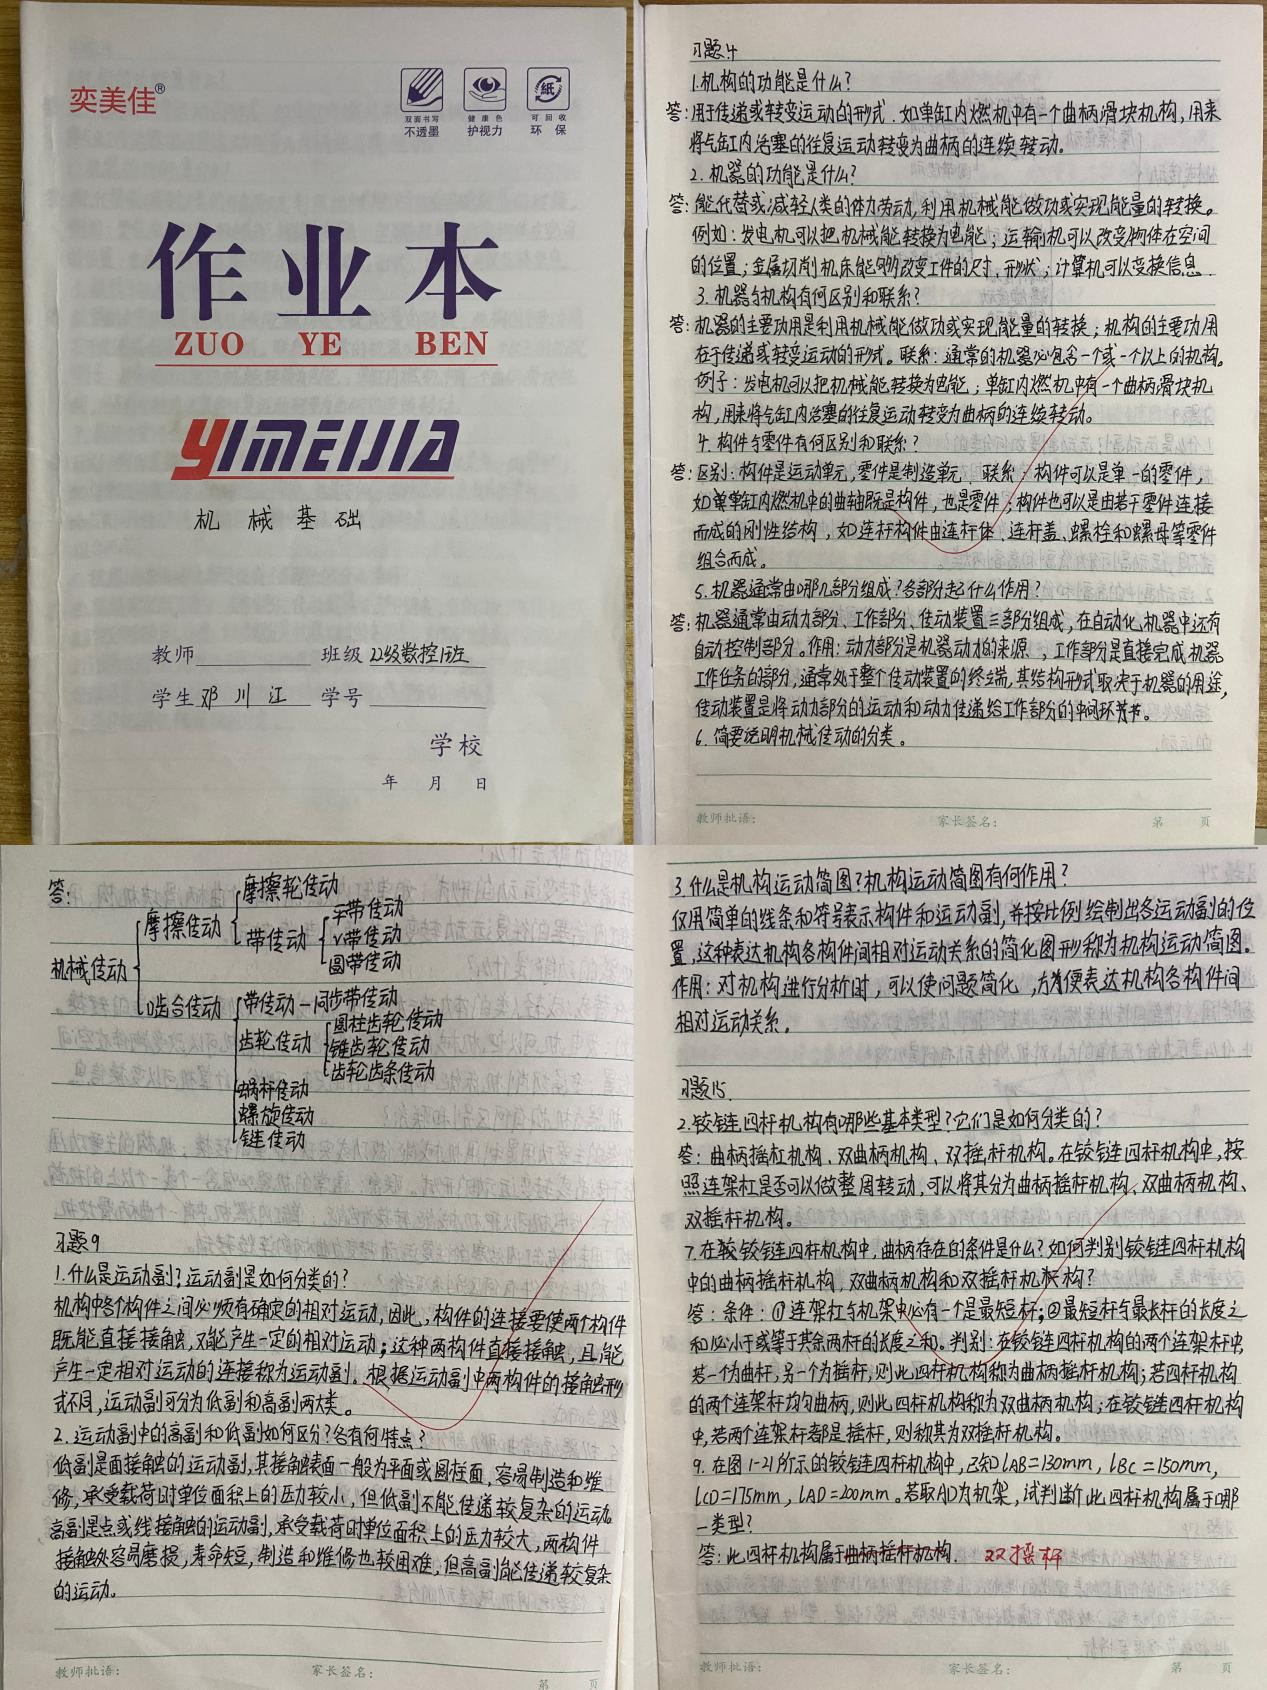 奕美佳®
双面书写
不透墨
健康色
护视力
紙
可回收
环保
作业本
ZUO YE BEN
YIMEIJIA
机械基础
教师 班级 22级数控1班
学生 邓川江 学号
学校
年 月 日
习题4
1.机构的功能是什么?
答:用于传递或转变运动的形式.如单缸内燃机中有一个曲柄滑块机构,用来
将气缸内活塞的往复运动转变为曲柄的连续转动。
2.机器的功能是什么?
答:能代替或减轻人类的体力劳动,利用机械能做功或实现能量的转换。
例如:发电机可以把机械能转换为电能;运输机可以改变物体在空间
的位置;金属切削机床能够改变工件的尺寸、形状;计算机可以变换信息.
3.机器与机构有何区别和联系?
答:机器的主要功用是利用机械能做功或实现能量的转换;机构的主要功用
在于传递或转变运动的形式。联系:通常的机器必包含一个或一个以上的机构。
例子:发电机可以把机械能转换为电能;单缸内燃机中有一个曲柄滑块机
构,用来将气缸内活塞的往复运动转变为曲柄的连续转动。
4.构件与零件有何区别和联系?
答:区别:构件是运动单元,零件是制造单元;联系:构件可以是单一的零件,
如单缸内燃机中的曲轴既是构件,也是零件;构件也可以是由若干零件连接
而成的刚性结构,如连杆构件由连杆体、连杆盖、螺栓和螺母等零件
组合而成。
5.机器通常由哪几部分组成?各部分起什么作用?
答:机器通常由动力部分、工作部分、传动装置三部分组成,在自动化机器中还有
自动控制部分。作用:动力部分是机器动力的来源,工作部分是直接完成机器
工作任务的部分,通常处于整个传动装置的终端,其结构形式取决于机器的用途,
传动装置是将动力部分的运动和动力传递给工作部分的中间环节。
6.简要说明机械传动的分类。
教师批语: 家长签名: 第 页
答:
机械传动
摩擦传动
摩擦轮传动
带传动
平带传动
V带传动
圆带传动
啮合传动
带传动—同步带传动
齿轮传动
圆柱齿轮传动
锥齿轮传动
齿轮齿条传动
蜗杆传动
螺旋传动
链传动
习题9
1.什么是运动副?运动副是如何分类的?
机构中各个构件之间必须有确定的相对运动,因此,构件的连接要使两个构件
既能直接接触,又能产生一定的相对运动;这种两构件直接接触,且能
产生一定相对运动的连接称为运动副.根据运动副中两构件的接触形
式不同,运动副可分为低副和高副两大类。
2.运动副中的高副和低副如何区分?各有何特点?
低副是面接触的运动副,其接触表面一般为平面或圆柱面,容易制造和维
修,承受载荷时单位面积上的压力较小,但低副不能传递较复杂的运动。
高副是点或线接触的运动副,承受载荷时单位面积上的压力较大,两构件
接触处容易磨损,寿命短,制造和维修也较困难,但高副能传递较复杂
的运动。
教师批语: 家长签名: 第 页
3.什么是机构运动简图?机构运动简图有何作用?
仅用简单的线条和符号表示构件和运动副,并按比例绘制出各运动副的位
置,这种表达机构各构件间相对运动关系的简化图形称为机构运动简图。
作用:对机构进行分析时,可以使问题简化,方便表达机构各构件间
相对运动关系。
习题15.
2.铰链四杆机构有哪些基本类型?它们是如何分类的?
答:曲柄摇杠机构、双曲柄机构、双摇杆机构。在铰链四杆机构中,按
照连架杠是否可以做整周转动,可以将其分为曲柄摇杆机构、双曲柄机构、
双摇杆机构。
7.在铰链四杆机构中,曲柄存在的条件是什么?如何判别铰链四杆机构
中的曲柄摇杆机构,双曲柄机构和双摇杆机构?
答:条件:①连架杠与机架中必有一个是最短杆;②最短杆与最长杆的长度之
和必小于或等于其余两杆的长度之和。判别:在铰链四杆机构的两个连架杆中,
若一个为曲杆,另一个为摇杆,则此四杆机构称为曲柄摇杆机构;若四杆机构
的两个连架杆均匀曲柄,则此四杆机构称为双曲柄机构;在铰链四杆机构
中,若两个连架杆都是摇杆,则称其为双摇杆机构。
9.在图1-21所示的铰链四杆机构中,已知lAB=130mm,lBC=150mm,
lCD=175mm,lAD=200mm。若取AD为机架,试判断此四杆机构属于哪
一类型?
答:此四杆机构属于曲柄摇杆机构. 双摇杆
教师批语: 家长签名: 第 页